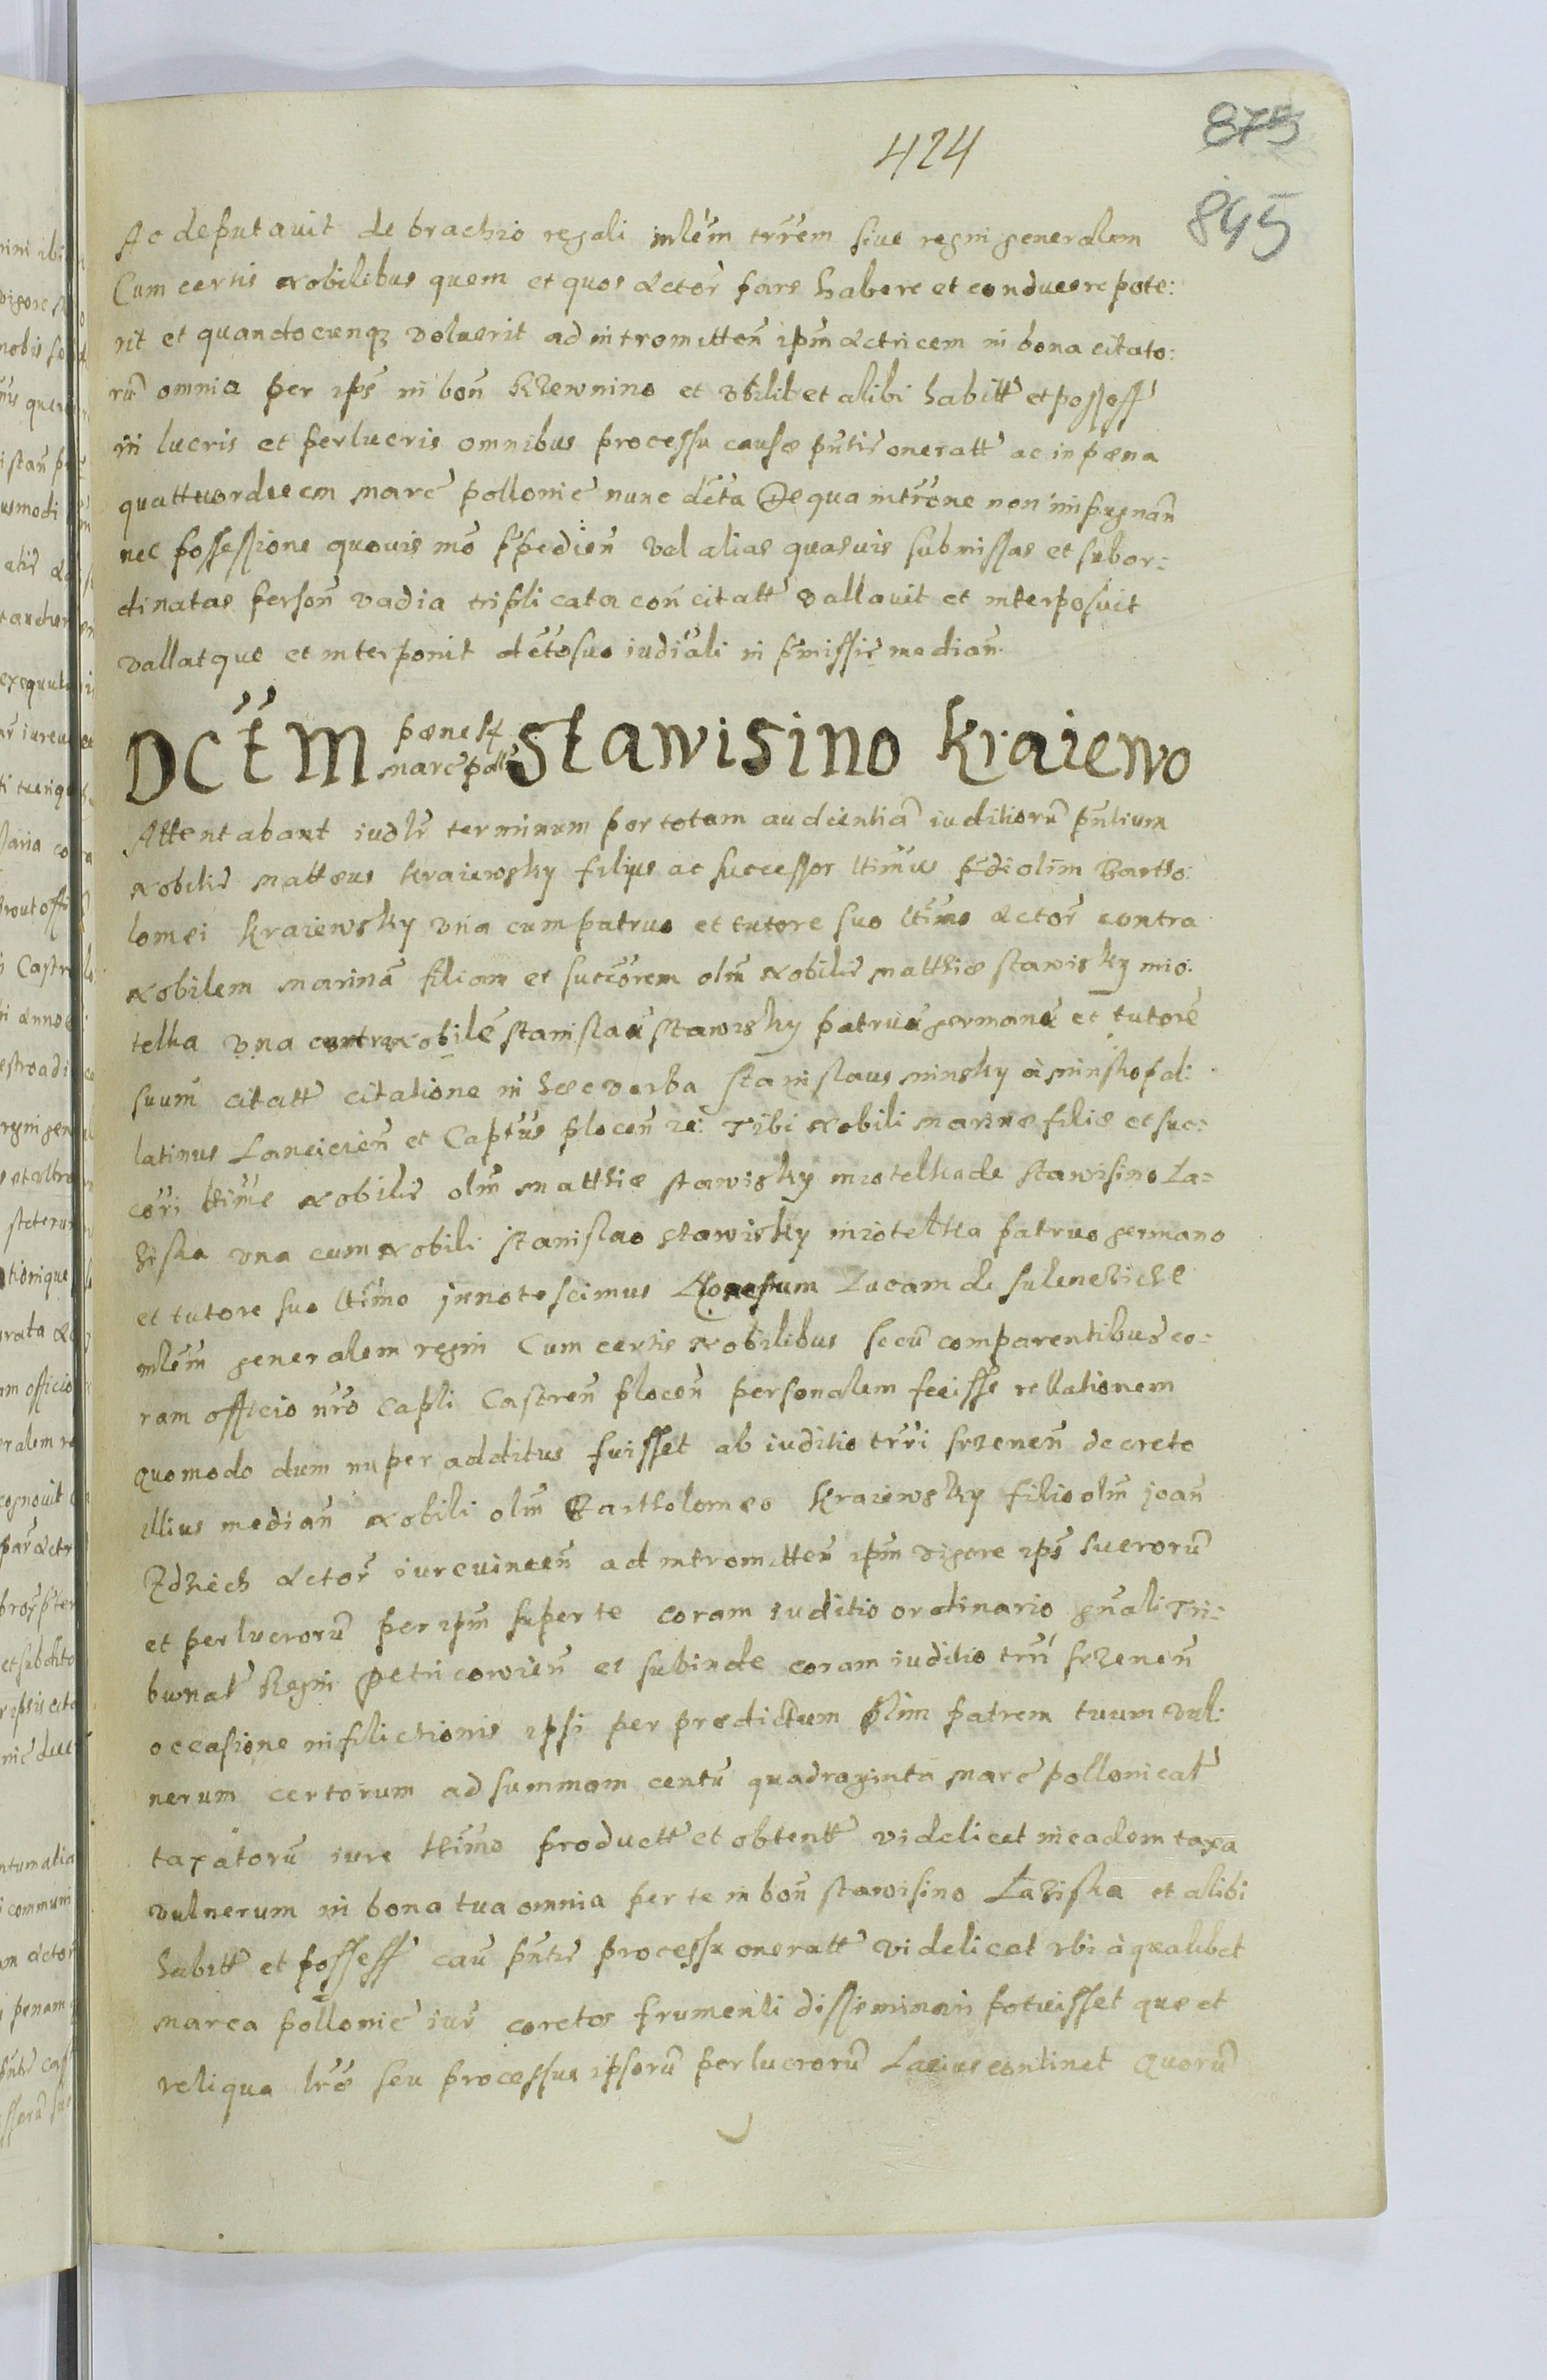 875
424
895
Ac deputavit de brachio regali mlem̃ trr̃em sive regni generalem
Cum certis Nobilibus quem et quos Actor̃ pars habere et conducere pote:
rit et quandocunq3 voluerit ad intromitten̄ ip̄m Actricem in bona citato:
rū omnia per ip̄s in bon̄ Krzewnino et ubilibet alibi habitt̄ et possess̄
in lucris et perlucris omnibus processu causæ pn̄tis oneratt̄ ac in pœna
quattuordecem Marc̄ pollonic̄ nunc dc̄ta De qua intr̄one non impugnan̄
nec possessione quovis mō p̄pedien̄ vel alias quasvis submissas et subor:
dinatas person̄ vadia triplicata con̄ citatt̄ vallavit et interposuit
vallatque et interponit dc̄to suo iudic̄ali in p̄missis median̄
Dct̄m pœne 14 marc̄ poll̄ Stawisino Kraiewo
Attentabant iudl̄r terminum per totam audientiā iuditiorū pn̄tium
Nobilis Matteus Kraiewsky filius ac successor ltimus p̄di olim Bartho:
lomei Kraiewsky una cum patruo et tutore suo ltimo Actor̄ contra
Nobilem Marinā filiam et succ̄orem olm̄ Nobilis Matthiæ Stawisky mio:
telka una contra Nobilē Stanislaū Stawisky patruū germanū et tutorē
suum citatt̄ citatione in hæc verba Stanislaus Minsky à Minsko pal:
latinus Lancicien̄ et Captūs plocen̄ zc: Tibi Nobili Marinæ filiæ et suc:
cori ltimæ Nobilis olm̄ Matthiæ Stawisky miotelka de Stawisino La:
ziska una cum Nobili Stanislao Stawisky miotelka patruo germano
et tutore suo ltimo innotescimus Lucam de
mlem̃ generalem regni Cum certis Nobilibus secū comparentibus co:
ram officio nr̄o Capl̄i Castren̄ plocen̄ personalem fecisse rellationem
quomodo dum nuper additus fuisset ab iuditio trr̄i srzenen̄ decreto
illius median̄ Nobili olm̄ Bartholomeo Kraiewsky filio olm̄ Joan̄
Actor̄ iurevincen̄ ad intromitten̄ ip̄m vigore ip̄s lucrorū
et perlucrorū per ip̄m super te coram iuditio ordinario gn̄ali Tri:
bunal̄ Regni Petricowien̄ et subinde coram iuditio trr̄i srzenen̄
occasione inflictionis ipsi per prædictum olim patrem tuum vul:
nerum certorum ad summam centū quadraginta Marc̄ pollonical̄
taxatorū iure ltimo productt̄ et obtentt̄ videlicet in eadem taxa
vulnerum in bona tua omnia per te in bon̄ Stawisino Laziska et alibi
habitt̄ et possess̄ cau̅ pn̄tis processu oneratt̄ videlicet ubi à qualibet
marca pollonic̄ iur̄ coretos frumenti disseminari potuisset quæ et
reliqua lr̄æ seu processus ipsorū perlucrorū Lacius continet Quorū